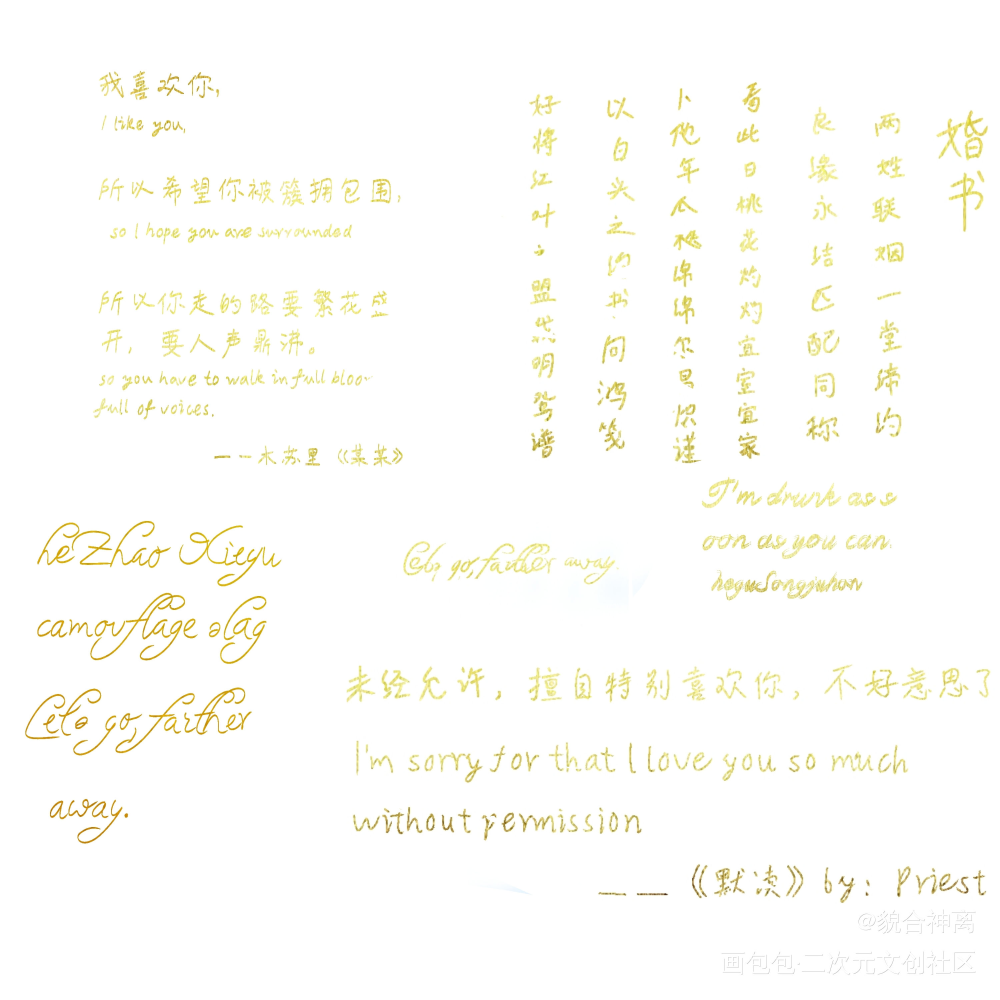 我喜欢你,
I like you,
所以希望你被簇拥包围,
so I hope you are surrounded
所以你走的路要繁花盛
开, 要人声鼎沸。
so you have to walk in full bloo
full of voices.
——木苏里《某某》
婚书
两姓联姻一堂缔约
良缘永结匹配同称
看此日桃花灼灼宜室宜家
卜他年瓜桃绵绵尔昌炽谨
以白头之约书向鸿笺
好将红叶之盟载明鸳谱
heZhao Xieyu
camouflage əlag
Let's go, farther
away.
Let's go, farther away.
I'm drunk as s
oon as you can.
heyuSongjuhan
未经允许, 擅自特别喜欢你, 不好意思了
I'm sorry for that I love you so much
without permission
——《默读》by: Priest
@貌合神离
画包包·二次元文创社区